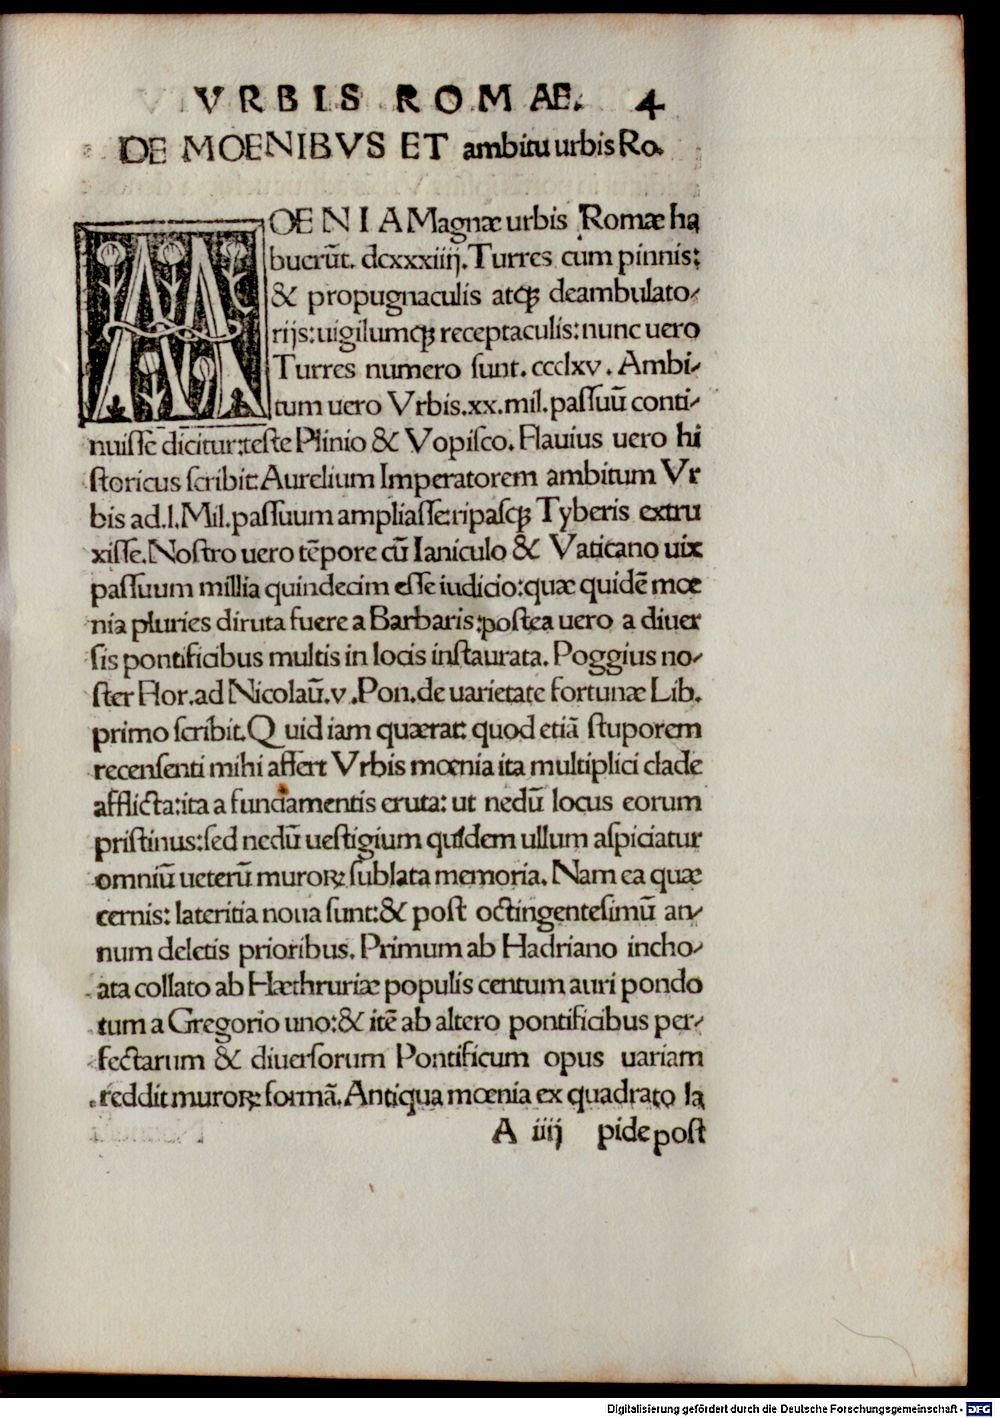 VRBIS ROMAE. 4
DE MOENIBVS ET ambitu urbis Ro.
MOENIA Magnæ urbis Romæ ha
buerūt. dcxxxiiij. Turres cum pinnis:
& propugnaculis atqꝫ deambulato-
rijs: uigilumqꝫ receptaculis: nunc uero
Turres numero ſunt. ccclxv. Ambi-
tum uero Vrbis. xx. mil. paſſuū conti-
nuiſſe dicitur: teſte Plinio & Vopiſco. Flauius uero hi
ſtoricus ſcribit: Aurelium Imperatorem ambitum Vr
bis ad. l. Mil. paſſuum ampliaſſe: ripaſqꝫ Tyberis extru
xiſſe. Noſtro uero tēpore cū Ianiculo & Vaticano uix
paſſuum millia quindecim eſſe iudicio: quæ quidē mœ
nia pluries diruta fuere a Barbaris: poſtea uero a diuer
ſis pontificibus multis in locis inſtaurata. Poggius no-
ſter Flor. ad Nicolaū. v. Pon. de uarietate fortunæ Lib.
primo ſcribit. Quid iam quærat: quod etiā ſtuporem
recenſenti mihi affert Vrbis mœnia ita multiplici clade
afflicta: ita a fundamentis eruta: ut nedū locus eorum
priſtinus: ſed nedū ueſtigium quidem ullum aſpiciatur
omniū ueterū muroꝝ ſublata memoria. Nam ea quæ
cernis: lateritia noua ſunt: & poſt octingenteſimū an-
num deletis prioribus. Primum ab Hadriano incho-
ata collato ab Hæthruriæ populis centum auri pondo
tum a Gregorio uno: & itē ab altero pontificibus per-
fectarum & diuerſorum Pontificum opus uariam
reddit muroꝝ formā. Antiqua mœnia ex quadrato la
A iiij pide poſt
Digitalisierung gefördert durch die Deutsche Forschungsgemeinschaft - DFG